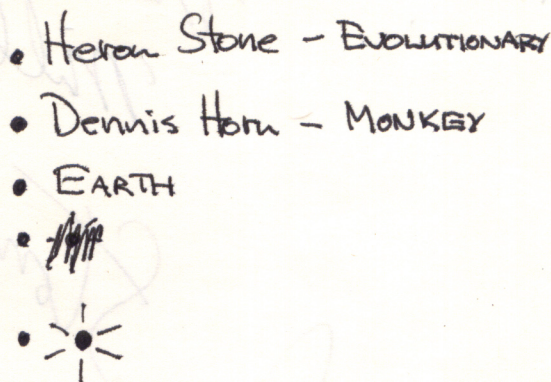 • Heron Stone - EVOLUTIONARY
• Dennis Horn - MONKEY
• EARTH